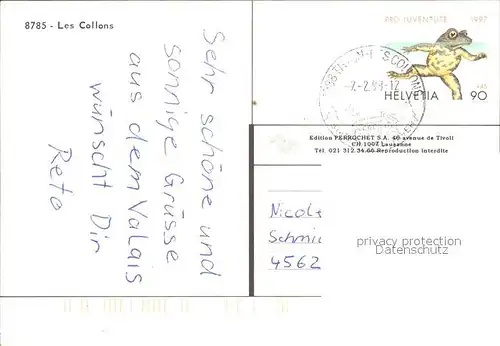 8785 - Les Collons
PRO JUVENTUTE 1997
HELVETIA 90
Sehr schöne und
sonnige Grüsse
aus dem Valais
wünscht Dir
Reto
Edition PERROCHET S.A. 40 avenue de Tivoli
CH 1007 Lausanne
Tél. 021 312.34.66 Reproduction interdite
Nicol
Schmi
4562
privacy protection
Datenschutz